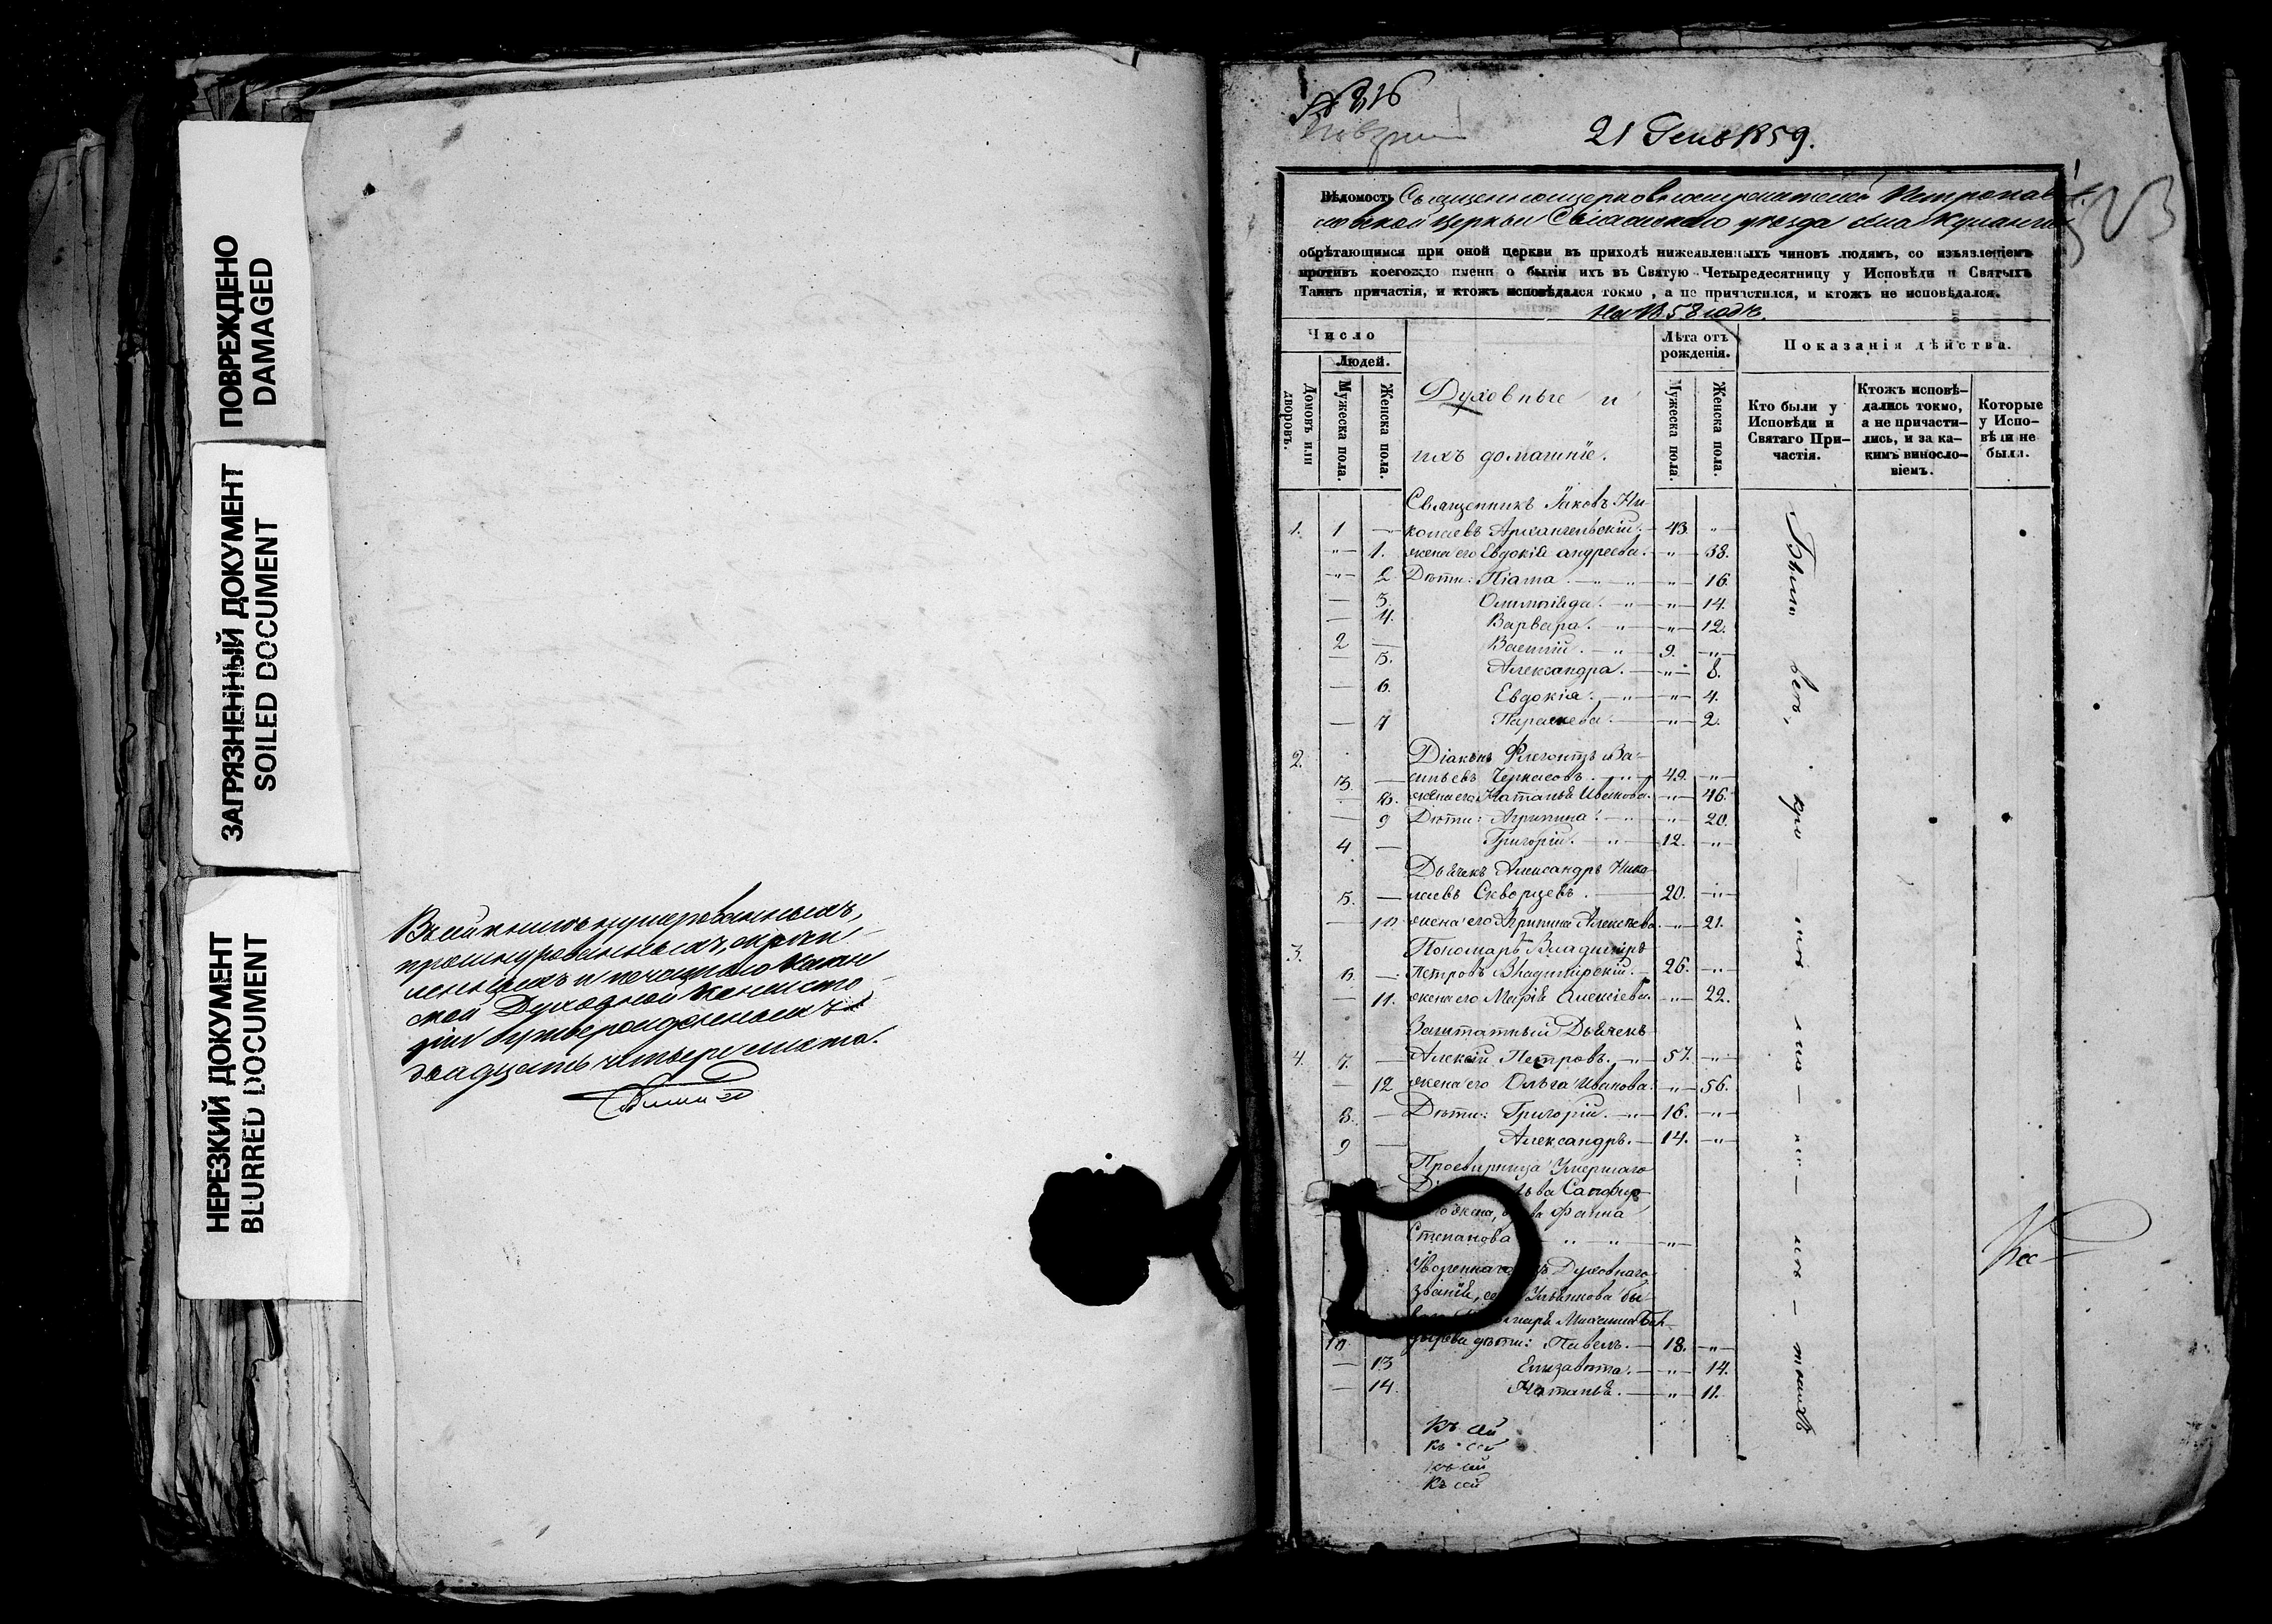 ПОВРЕЖДЕНО
DAMAGED
ЗАГРЯЗНЕННЫЙ ДОКУМЕНТ
SOILED DOCUMENT
НЕРЕЗКИЙ ДОКУМЕНТ
BLURRED DOCUMENT
нумерованныхъ,
прошнурованныхъ, скрѣп-
ленныхъ и печатью Казан
ской Духовной Консисто
ріи
двадцать четыре листа.
21 Генв 1859.
Вѣдомость Священноцерковнослужителей Петропав-
ловской церкви уѣзда села
обрѣтающимся при оной церкви въ приходѣ нижеявленныхъ чиновъ людямъ, со изъявленіемъ
противъ коегождо имени о бытіи ихъ въ Святую Четыредесятницу у Исповѣди и Святыхъ
Таинъ причастія, и ктожъ исповѣдался токмо, а не причастился, и ктожъ не исповѣдался.
На 1858 годъ.
Число
Людей.
Домовъ или дворовъ.
Мужеска пола.
Женска пола.
Духовные и
ихъ домашніе.
Лѣта отъ рожденія.
Мужеска пола.
Женска пола.
Показанія дѣйства.
Кто были у Исповѣди и Святаго При-частія.
Ктожъ исповѣ-дались токмо, а не причасти-лись, и за ка-кимъ винословіемъ.
Которые у Испо-вѣди не были.
Священникъ Іаковъ Ни-
1. 1 — колаевъ Архангельскій 43. "
" 1. жена его Евдокія Андреева. " 38.
" 2 Дѣти: Піама. " " " 16.
— 3. Олимпіада. " " 14.
— 4. Варвара. " " 12.
2 — Василій. " 9. "
— 5. Александра. " 8.
— 6. Евдокія. " " 4.
— 7 Параскева. " 2.
2. Діаконъ Флегонтъ Ва-
3. — сильевъ Черкасовъ. " 49. "
— 8. жена его Наталья Иванова. " 46.
— 9 Дѣти: Агрипина. " " 20.
4 — Григорій. " 12. "
Дьячекъ Александръ Нико
5. — лаевъ Скворцевъ. 20. "
— 10 жена его Агрипина Алексѣева. " 21.
3. Пономарь Владиміръ
6. — Петровъ Владимірскій. 26. "
— 11. жена его Марія Алексіева. " 22.
Заштатный Дьячекъ
4. 7. — Алексій Петровъ. " 57. "
— 12 жена его Ольга Иванова. " 56.
8. — Дѣти: Григорій. " 16. "
9 — Александръ. 14. "
Просвирница Умершаго
Степанова " " "
Духовнаго
званія,
10 дѣти: Павелъ. 18. "
— 13 Елизавета. " 14.
— 14. Наталья. " 11.
Къ сей
Къ сей
Къ сей
Къ сей